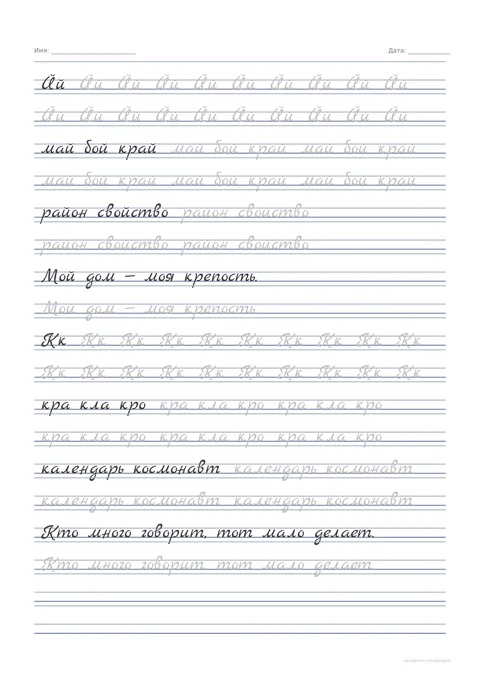 Имя: Дата:
Йй Йй Йй Йй Йй Йй Йй Йй Йй Йй
Йй Йй Йй Йй Йй Йй Йй Йй Йй Йй
май бой край май бой край май бой край
май бой край май бой край май бой край
район свойство район свойство
район свойство район свойство
Мой дом — моя крепость.
Мой дом — моя крепость
Кк Кк Кк Кк Кк Кк Кк Кк Кк Кк
Кк Кк Кк Кк Кк Кк Кк Кк Кк Кк
кра кла кро кра кла кро кра кла кро
кра кла кро кра кла кро кра кла кро
календарь космонавт календарь космонавт
календарь космонавт календарь космонавт
Кто много говорит, тот мало делает.
Кто много говорит тот мало делает